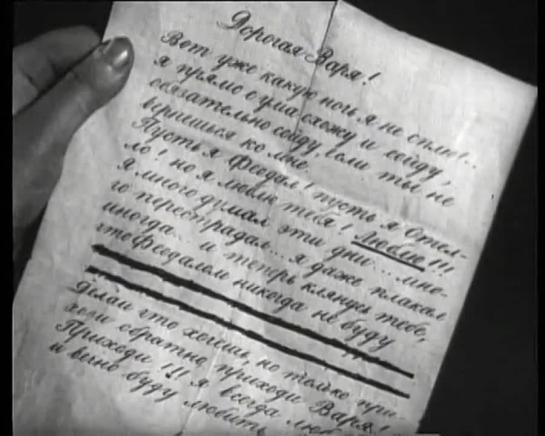 Дорогая Варя!
Вот уже какую ночь я не сплю!..
я прямо с ума схожу и сойду,
обязательно сойду, если ты не
вернешься ко мне.
Пусть я феодал! пусть я Отел-
ло! но я люблю тебя! Люблю!!!
Я много думал эти дни... мно-
го перестрадал... я даже плакал
иногда... и теперь клянусь тебе,
что феодалом никогда не буду
Делай что хочешь, но только при-
ходи обратно, приходи Варя!
Приходи!!! Я всегда
и вечно буду любить